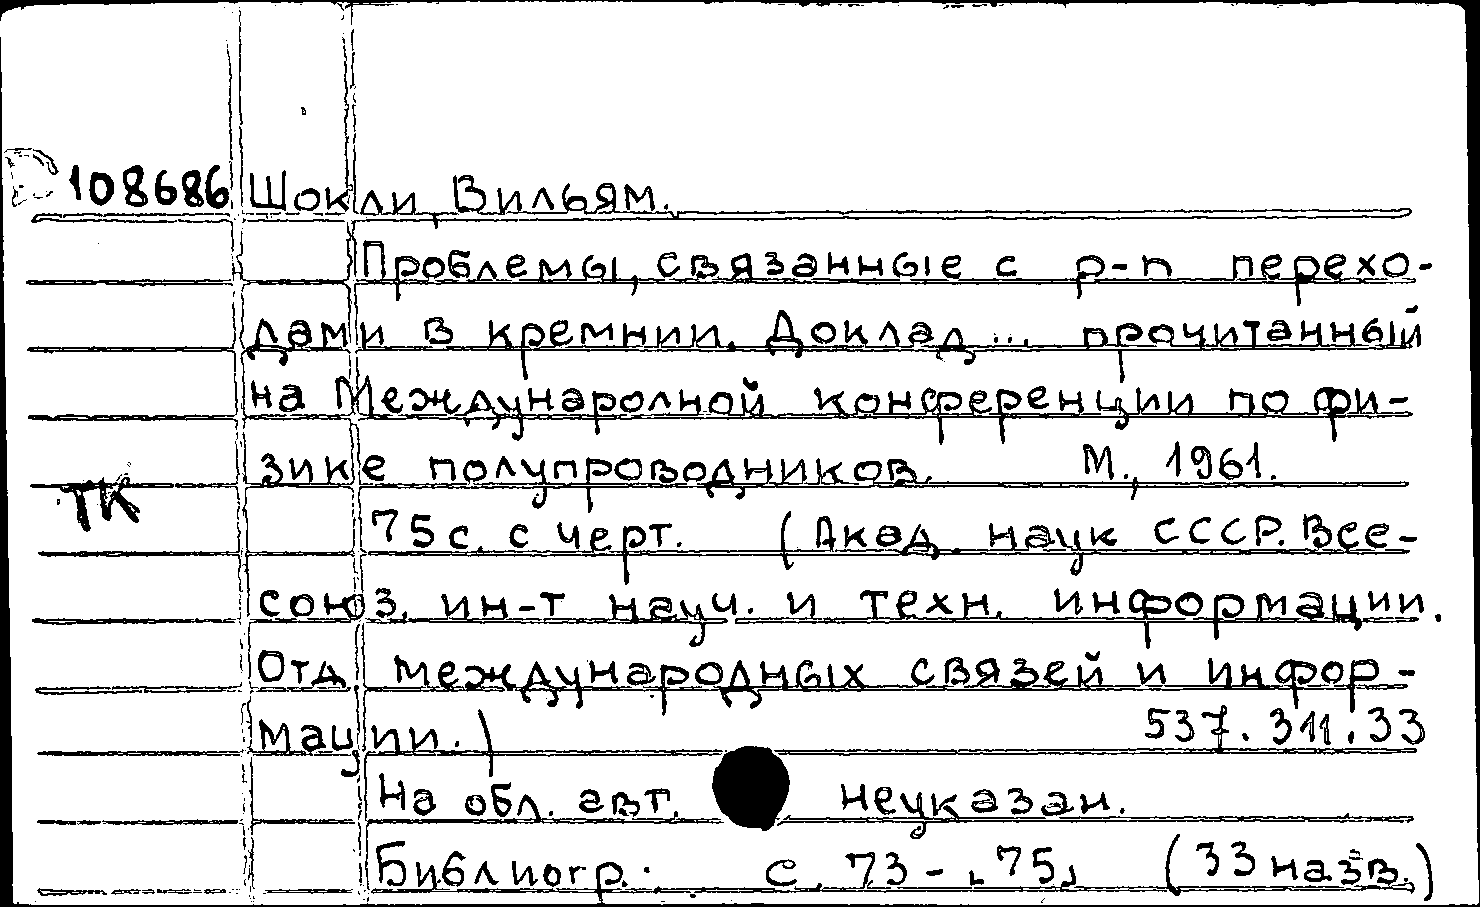 108686 Шокли, Вильям.
Проблемы, связанные с p-n перехо-
дами в кремнии. Доклад ... прочитанный
на Международной конференции по фи-
зике полупроводников. М., 1961.
ТК
75 с. с черт. (Акад. наук СССР. Все-
союз. ин-т науч. и техн. информации.
Отд международных связей и инфор-
мации.) 537.311.33
На обл. авт. неуказан.
Библиогр. с. 73-75, (33 назв.)